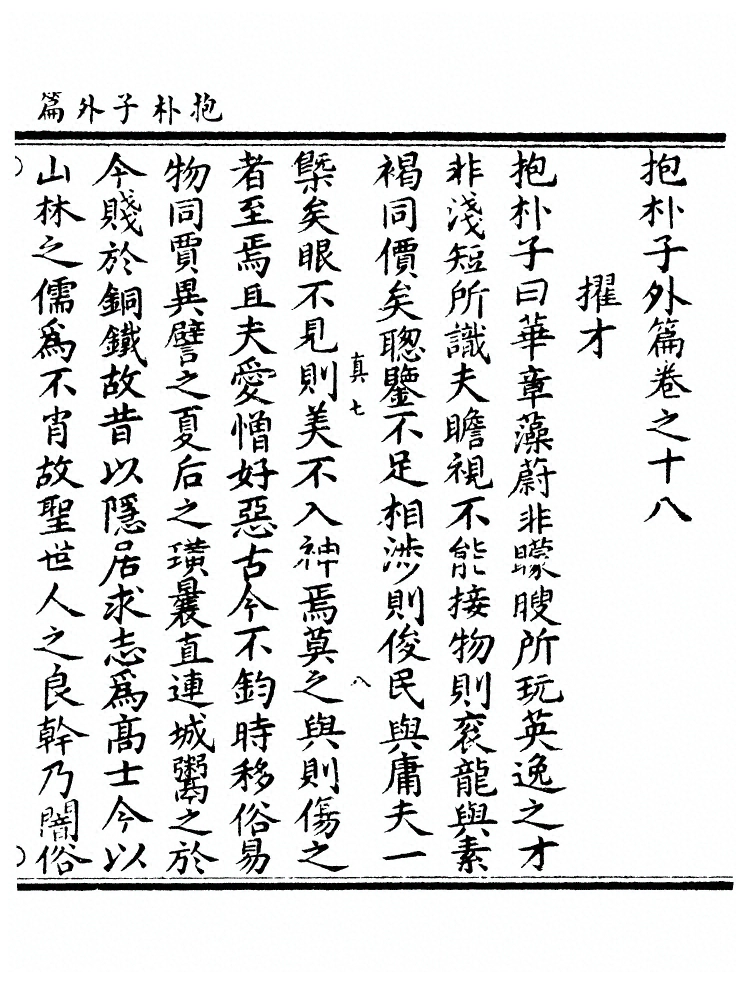 抱朴子外篇
抱朴子外篇卷之十八
擢才
抱朴子曰華章藻蔚非矇瞍所玩英逸之才
非淺短所識夫瞻視不能接物則袞龍與素
褐同價矣聰鑒不足相涉則俊民與庸夫一
真七
八
槩矣眼不見則美不入神焉莫之與則傷之
者至焉且夫愛憎好惡古今不鈞時移俗易
物同賈異譬之夏后之璜曩直連城鬻之於
今賤於銅鐵故昔以隱居求志爲高士今以
山林之儒爲不肖故聖世人之良幹乃闇俗